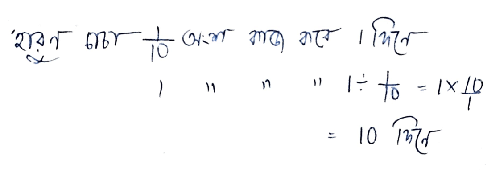 হারুন চাচা 1/10 অংশ কাজ করে 1 দিনে
1 " " " 1 ÷ 1/10 = 1 × 10/1
= 10 দিনে